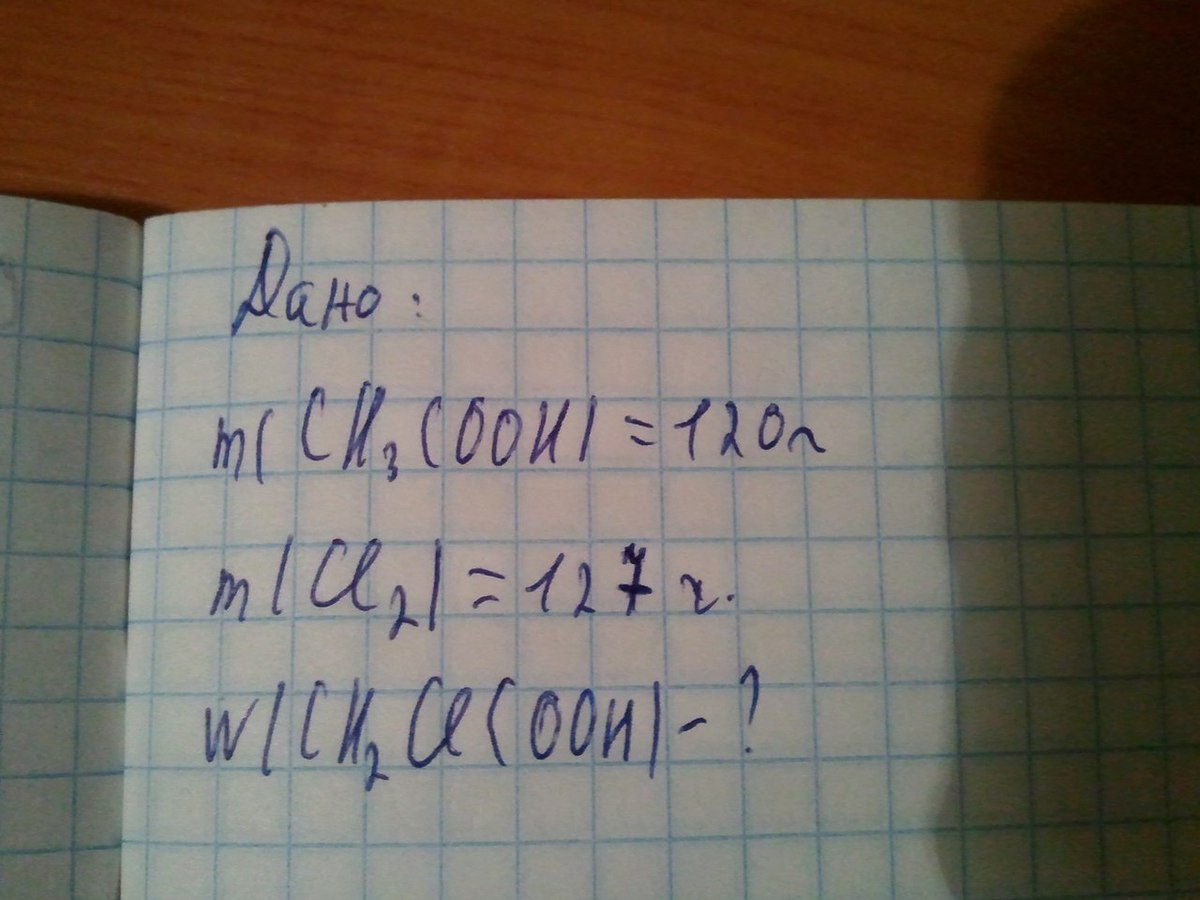 Дано:
m(CH₃COOH)=120г
m(Cl₂)=127г.
W(CH₂ClCOOH)-?